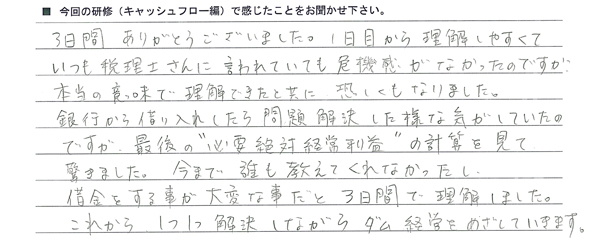 ■ 今回の研修（キャッシュフロー編）で感じたことをお聞かせ下さい。
3日間 ありがとうございました。1日目から理解しやすくて
いつも税理士さんに言われていても危機感がなかったのですが
本当の意味で理解できたと共に 恐しくもなりました。
銀行から借り入れしたら問題解決した様な気がしていたの
ですが、最後の"必要絶対経常利益"の計算を見て
驚きました。今まで誰も教えてくれなかったし、
借金をする事が大変な事だと3日間で理解しました。
これから1つ1つ解決しながらダム経営をめざしていきます。